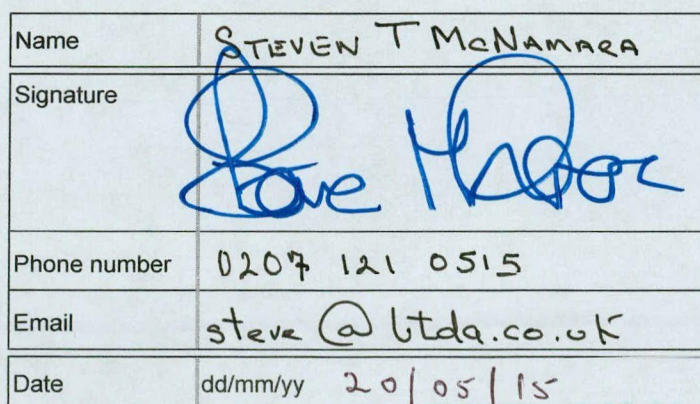 Name STEVEN T McNAMARA
Signature Steve
Phone number 0207 121 0515
Email steve@ltda.co.uk
Date dd/mm/yy 20/05/15